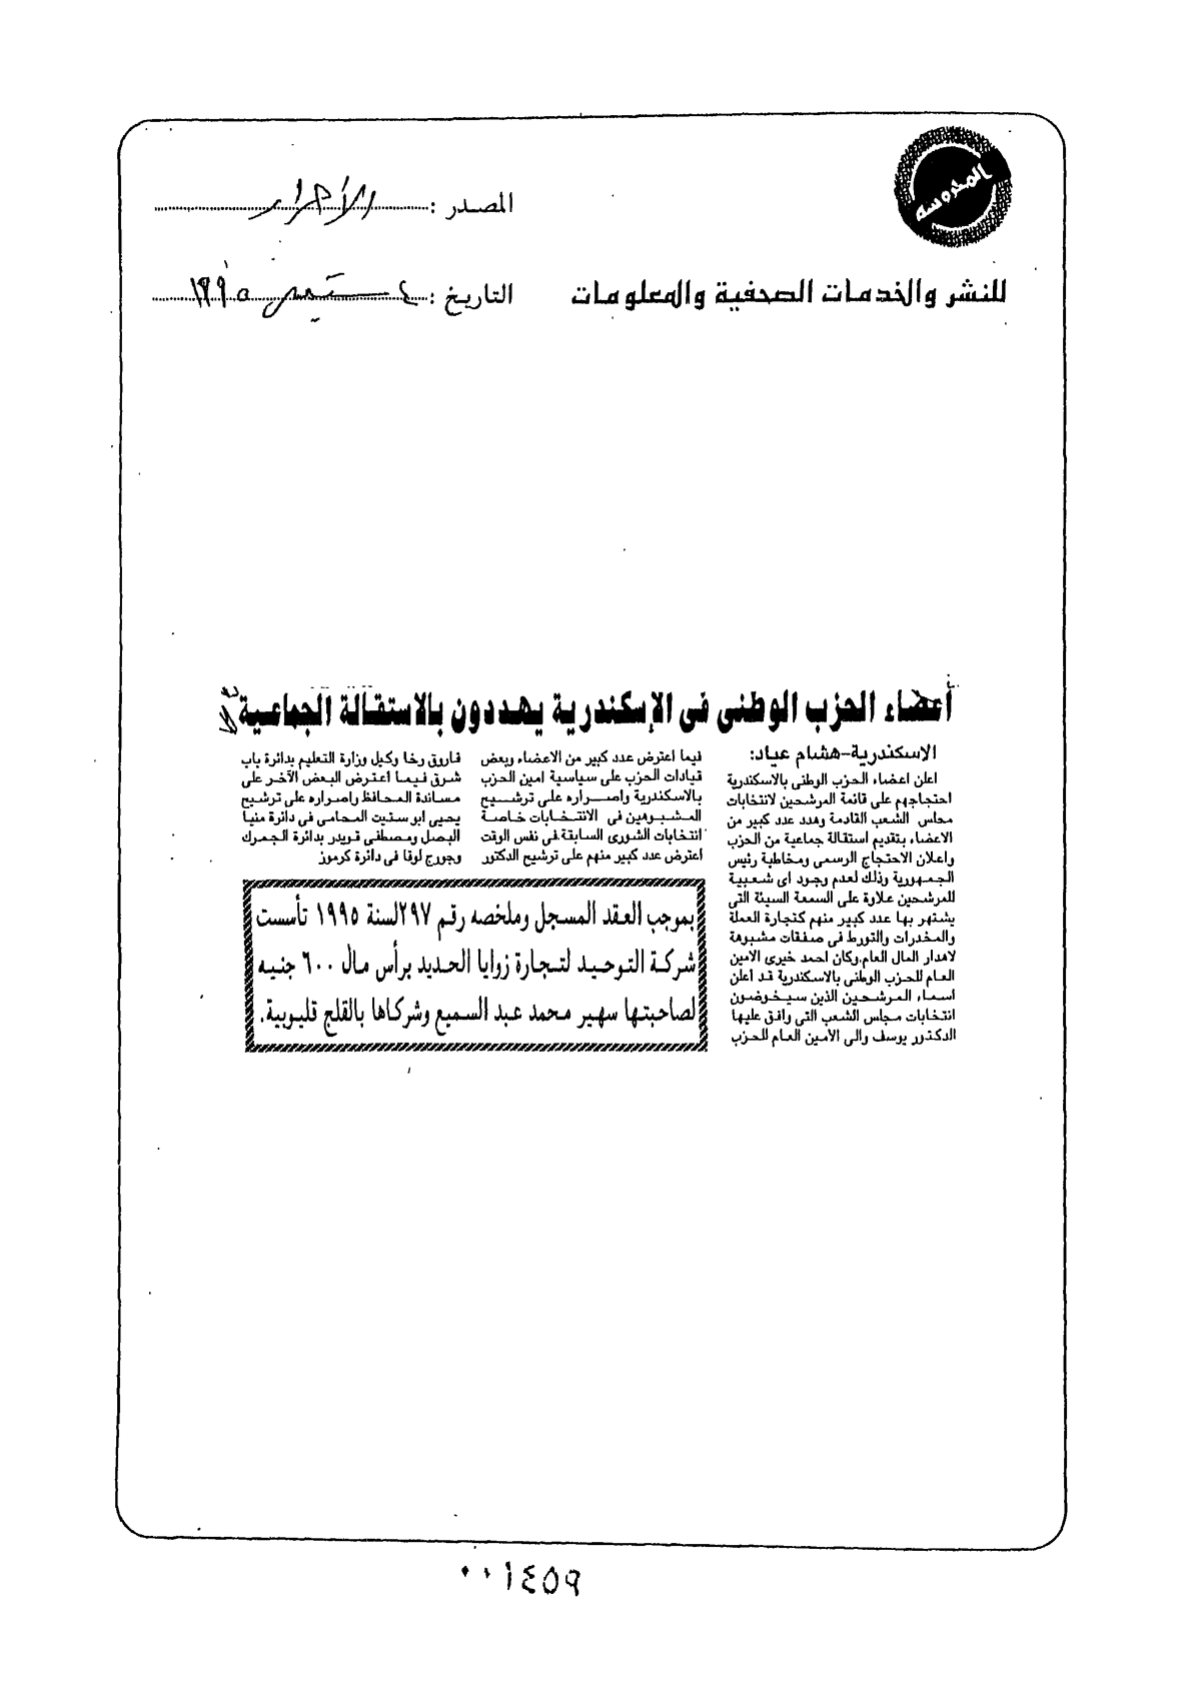 المحروسة
المصدر : الأحرار
للنشر والخدمات الصحفية والمعلومات
التاريخ : ٤ سبتمبر ١٩٩٥
أعضاء الحزب الوطنى فى الإسكندرية يهددون بالاستقالة الجماعية
الإسكندرية-هشام عياد:
اعلن اعضاء الحزب الوطنى بالاسكندرية
احتجاجهم على قائمة المرشحين لانتخابات
مجلس الشعب القادمة وهدد عدد كبير من
الاعضاء بتقديم استقالة جماعية من الحزب
واعلان الاحتجاج الرسمى ومخاطبة رئيس
الجمهورية وذلك لعدم وجود اى شعبية
للمرشحين علاوة على السمعة السيئة التى
يشتهر بها عدد كبير منهم كتجارة العملة
والمخدرات والتورط فى صفقات مشبوهة
لاهدار المال العام.وكان احمد خيرى الامين
العام للحزب الوطنى بالاسكندرية قد اعلن
اسماء المرشحين الذين سيخوضون
انتخابات مجلس الشعب التى وافق عليها
الدكتور يوسف والى الأمين العام للحزب
فيما اعترض عدد كبير من الاعضاء وبعض
قيادات الحزب على سياسية امين الحزب
بالاسكندرية واصراره على ترشيح
المشبوهين فى الانتخابات خاصة
انتخابات الشورى السابقة فى نفس الوقت
اعترض عدد كبير منهم على ترشيح الدكتور
فاروق رخا وكيل وزارة التعليم بدائرة باب
شرق فيما اعترض البعض الآخر على
مساندة المحافظ واصراره على ترشيح
يحيى ابو ستيت المحامى فى دائرة منيا
البصل ومصطفى قويدر بدائرة الجمرك
وجورج لوقا فى دائرة كرموز
بموجب العقد المسجل وملخصه رقم ٢٩٧لسنة ١٩٩٥ تأسست
شركة التوحيد لتجارة زوايا الحديد برأس مال ٦٠٠ جنيه
لصاحبتها سهير محمد عبد السميع وشركاها بالقلج قليوبية.
٠٠١٤٥٩